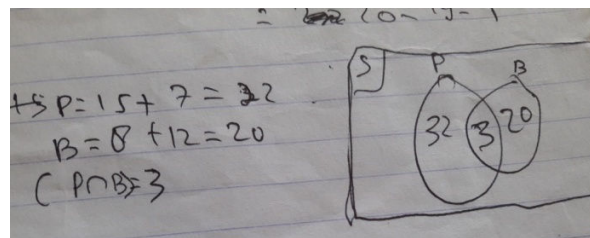 P=15+ 7 = 32
B = 8 + 12 = 20
(P∩B)=3
S
P
B
32
3
20